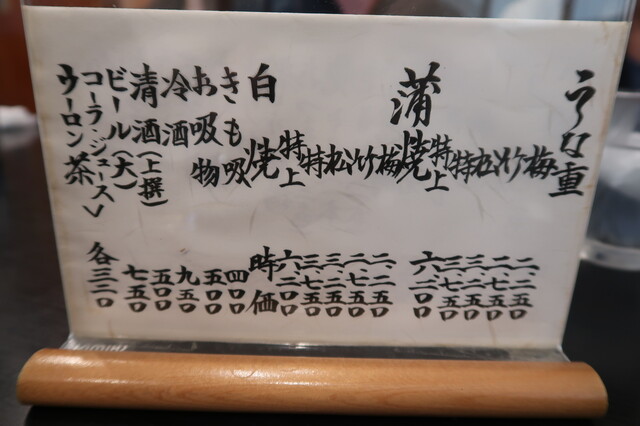 うな重
梅 二、二五〇
竹 二、七五〇
松 三、二五〇
特 三、七五〇
特上 六、二〇〇
蒲焼
梅 二、二五〇
竹 二、七五〇
松 三、二五〇
特 三、七五〇
特上 六、二〇〇
白焼 時価
きも吸 四〇〇
お吸物 五〇
冷酒 九五〇
清酒(上撰) 五〇〇
ビール(大) 七五〇
コーラ・ジュース
ウーロン茶 各三二〇